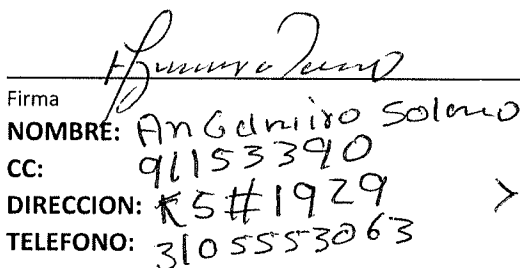 Firma
NOMBRE: Angelmiro Solano
CC: 91153390
DIRECCION: K5#1929
TELEFONO: 3105553063